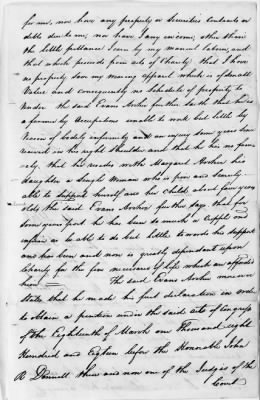 for me, nor have any property or securities contracts or
debts due to me; nor have I any income, other than
the little pittance I earn by my manual labour, and
that which proceeds from acts of Charity that I have
no property save my wearing apparel which is of small
Value and consequently no Schedule of property to
render the said Evan Archer further Saith that he is
a farmer by Occupation unable to work but little by
reason of bodily infirmity and an injury some years since
received in his right Shoulder and that he has no
that he resides with Margaret Archer his
daughter a Single Woman who is poor and Scarcely
able to support herself and her child about four years
old the said Evan Archer further says that for
some years past he has been so much a cripple and
infirm as to able to do but little towards his support
and has been and now is greatly dependant upon
Charity for the few necessaries of life which are afforded
him The said Evan Archer moreover
States that he made his first declaration in order
to Obtain a pension under the said acts of Congress
of the Eighteenth of March one Thousand eight
Hundred and Eighteen before the Honorable John
R Donnell then and now one of the Judges of the
Court